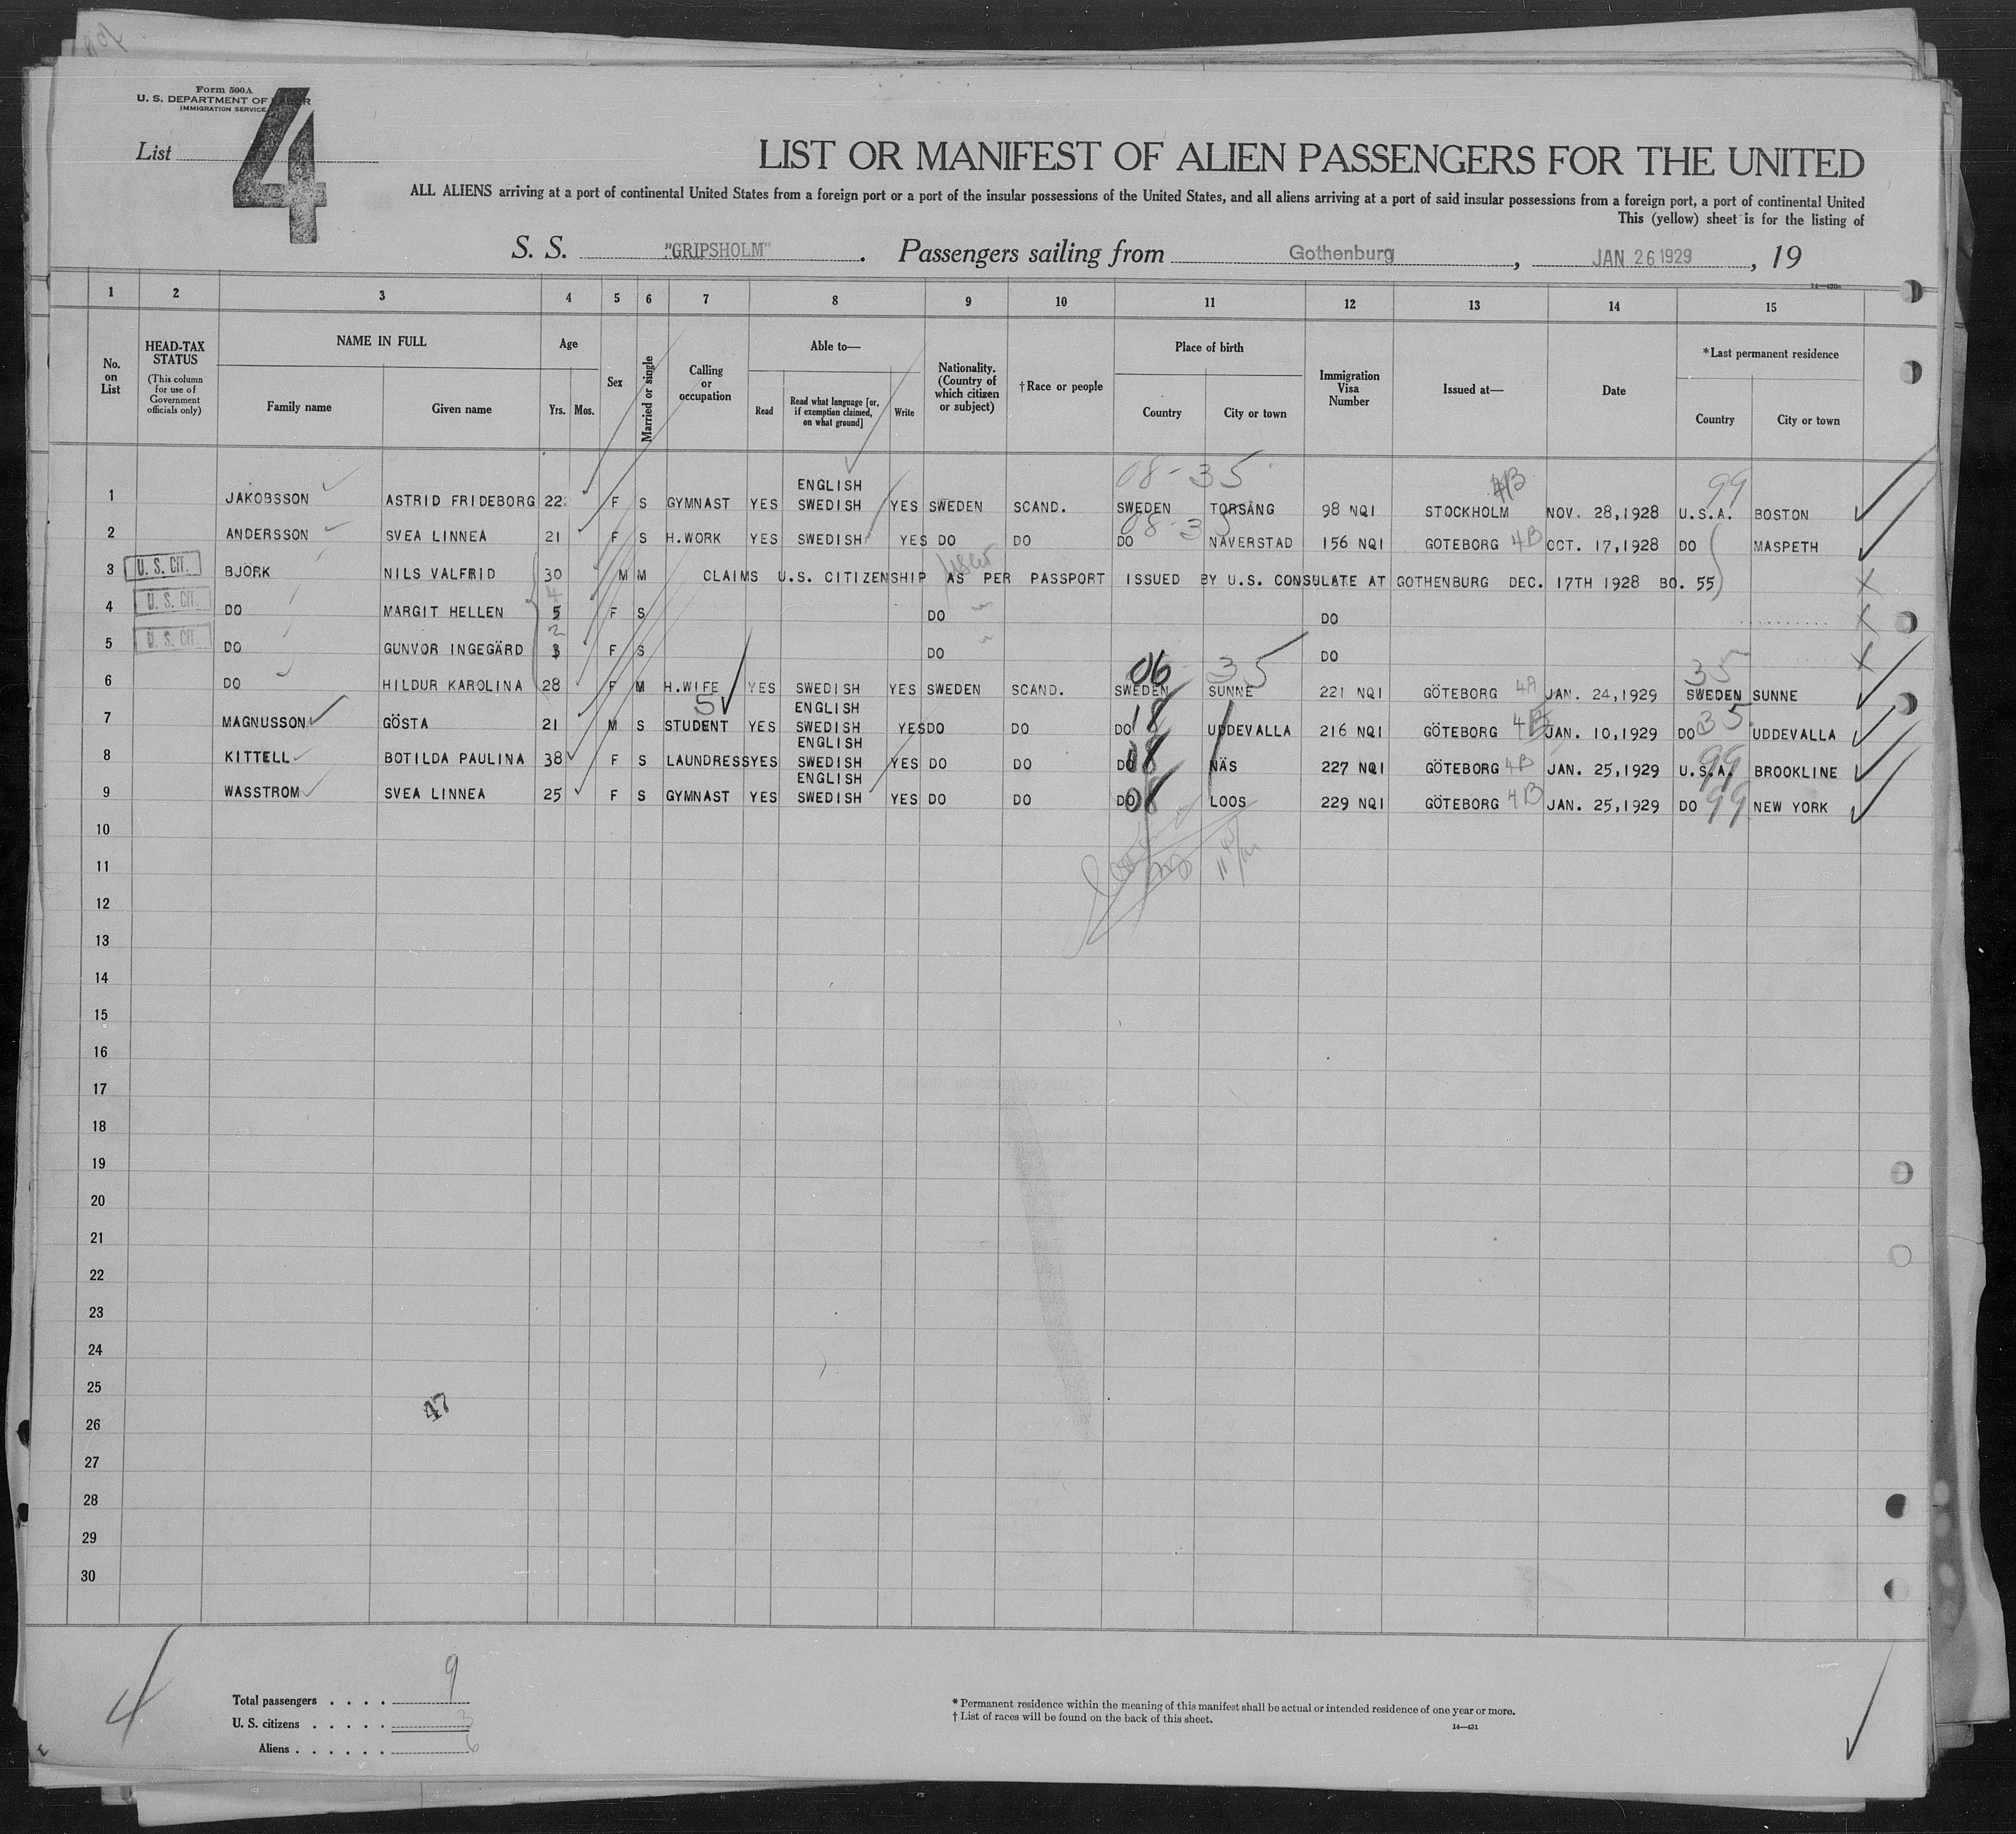 Form 500A
U. S. DEPARTMENT OF LABOR
IMMIGRATION SERVICE
List 4
LIST OR MANIFEST OF ALIEN PASSENGERS FOR THE UNITED
ALL ALIENS arriving at a port of continental United States from a foreign port or a port of the insular possessions of the United States, and all aliens arriving at a port of said insular possessions from a foreign port, a port of continental United
This (yellow) sheet is for the listing of
S. S. "GRIPSHOLM". Passengers sailing from Gothenburg, JAN 26 1929, 19
14—430
1 2 3 4 5 6 7 8 9 10 11 12 13 14 15
No. on List
HEAD-TAX STATUS (This column for use of Government officials only)
NAME IN FULL
Family name Given name
Age
Yrs. Mos.
Sex
Married or single
Calling or occupation
Able to—
Read Read what language [or, if exemption claimed, on what ground] Write
Nationality. (Country of which citizen or subject)
†Race or people
Place of birth
Country City or town
Immigration Visa Number
Issued at—
Date
*Last permanent residence
Country City or town
08-35 4B 99
1 JAKOBSSON ASTRID FRIDEBORG 22 F S GYMNAST YES ENGLISH SWEDISH YES SWEDEN SCAND. SWEDEN TORSÅNG 98 NQI STOCKHOLM NOV. 28,1928 U.S.A. BOSTON
08-35
2 ANDERSSON SVEA LINNEA 21 F S H.WORK YES SWEDISH YES DO DO DO NAVERSTAD 156 NQI GOTEBORG 4B OCT. 17,1928 DO MASPETH
3 U. S. CIT. BJÖRK NILS VALFRID 30 M M CLAIMS U.S. CITIZENSHIP AS PER PASSPORT ISSUED BY U.S. CONSULATE AT GOTHENBURG DEC. 17TH 1928 BO. 55
4 U. S. CIT. DO MARGIT HELLEN 5 4 F S DO DO
5 U. S. CIT. DO GUNVOR INGEGÄRD 3 2 F S DO DO
06 35 35
6 DO HILDUR KAROLINA 28 F M H.WIFE YES SWEDISH YES SWEDEN SCAND. SWEDEN SUNNE 221 NQI GÖTEBORG 4A JAN. 24,1929 SWEDEN SUNNE
5
7 MAGNUSSON GÖSTA 21 M S STUDENT YES ENGLISH SWEDISH YES DO DO DO 18 UDDEVALLA 216 NQI GÖTEBORG 4B JAN. 10,1929 DO 35 UDDEVALLA
8 KITTELL BOTILDA PAULINA 38 F S LAUNDRESS YES ENGLISH SWEDISH YES DO DO DO 08 NÄS 227 NQI GÖTEBORG 4B JAN. 25,1929 U.S.A. 99 BROOKLINE
9 WASSTROM SVEA LINNEA 25 F S GYMNAST YES ENGLISH SWEDISH YES DO DO DO 08 LOOS 229 NQI GÖTEBORG 4B JAN. 25,1929 DO 99 NEW YORK
10
11
12
13
14
15
16
17
18
19
20
21
22
23
24
25
47
26
27
28
29
30
4
Total passengers . . . . 9
U. S. citizens . . . . . 3
Aliens . . . . . . 6
* Permanent residence within the meaning of this manifest shall be actual or intended residence of one year or more.
† List of races will be found on the back of this sheet.
14—431